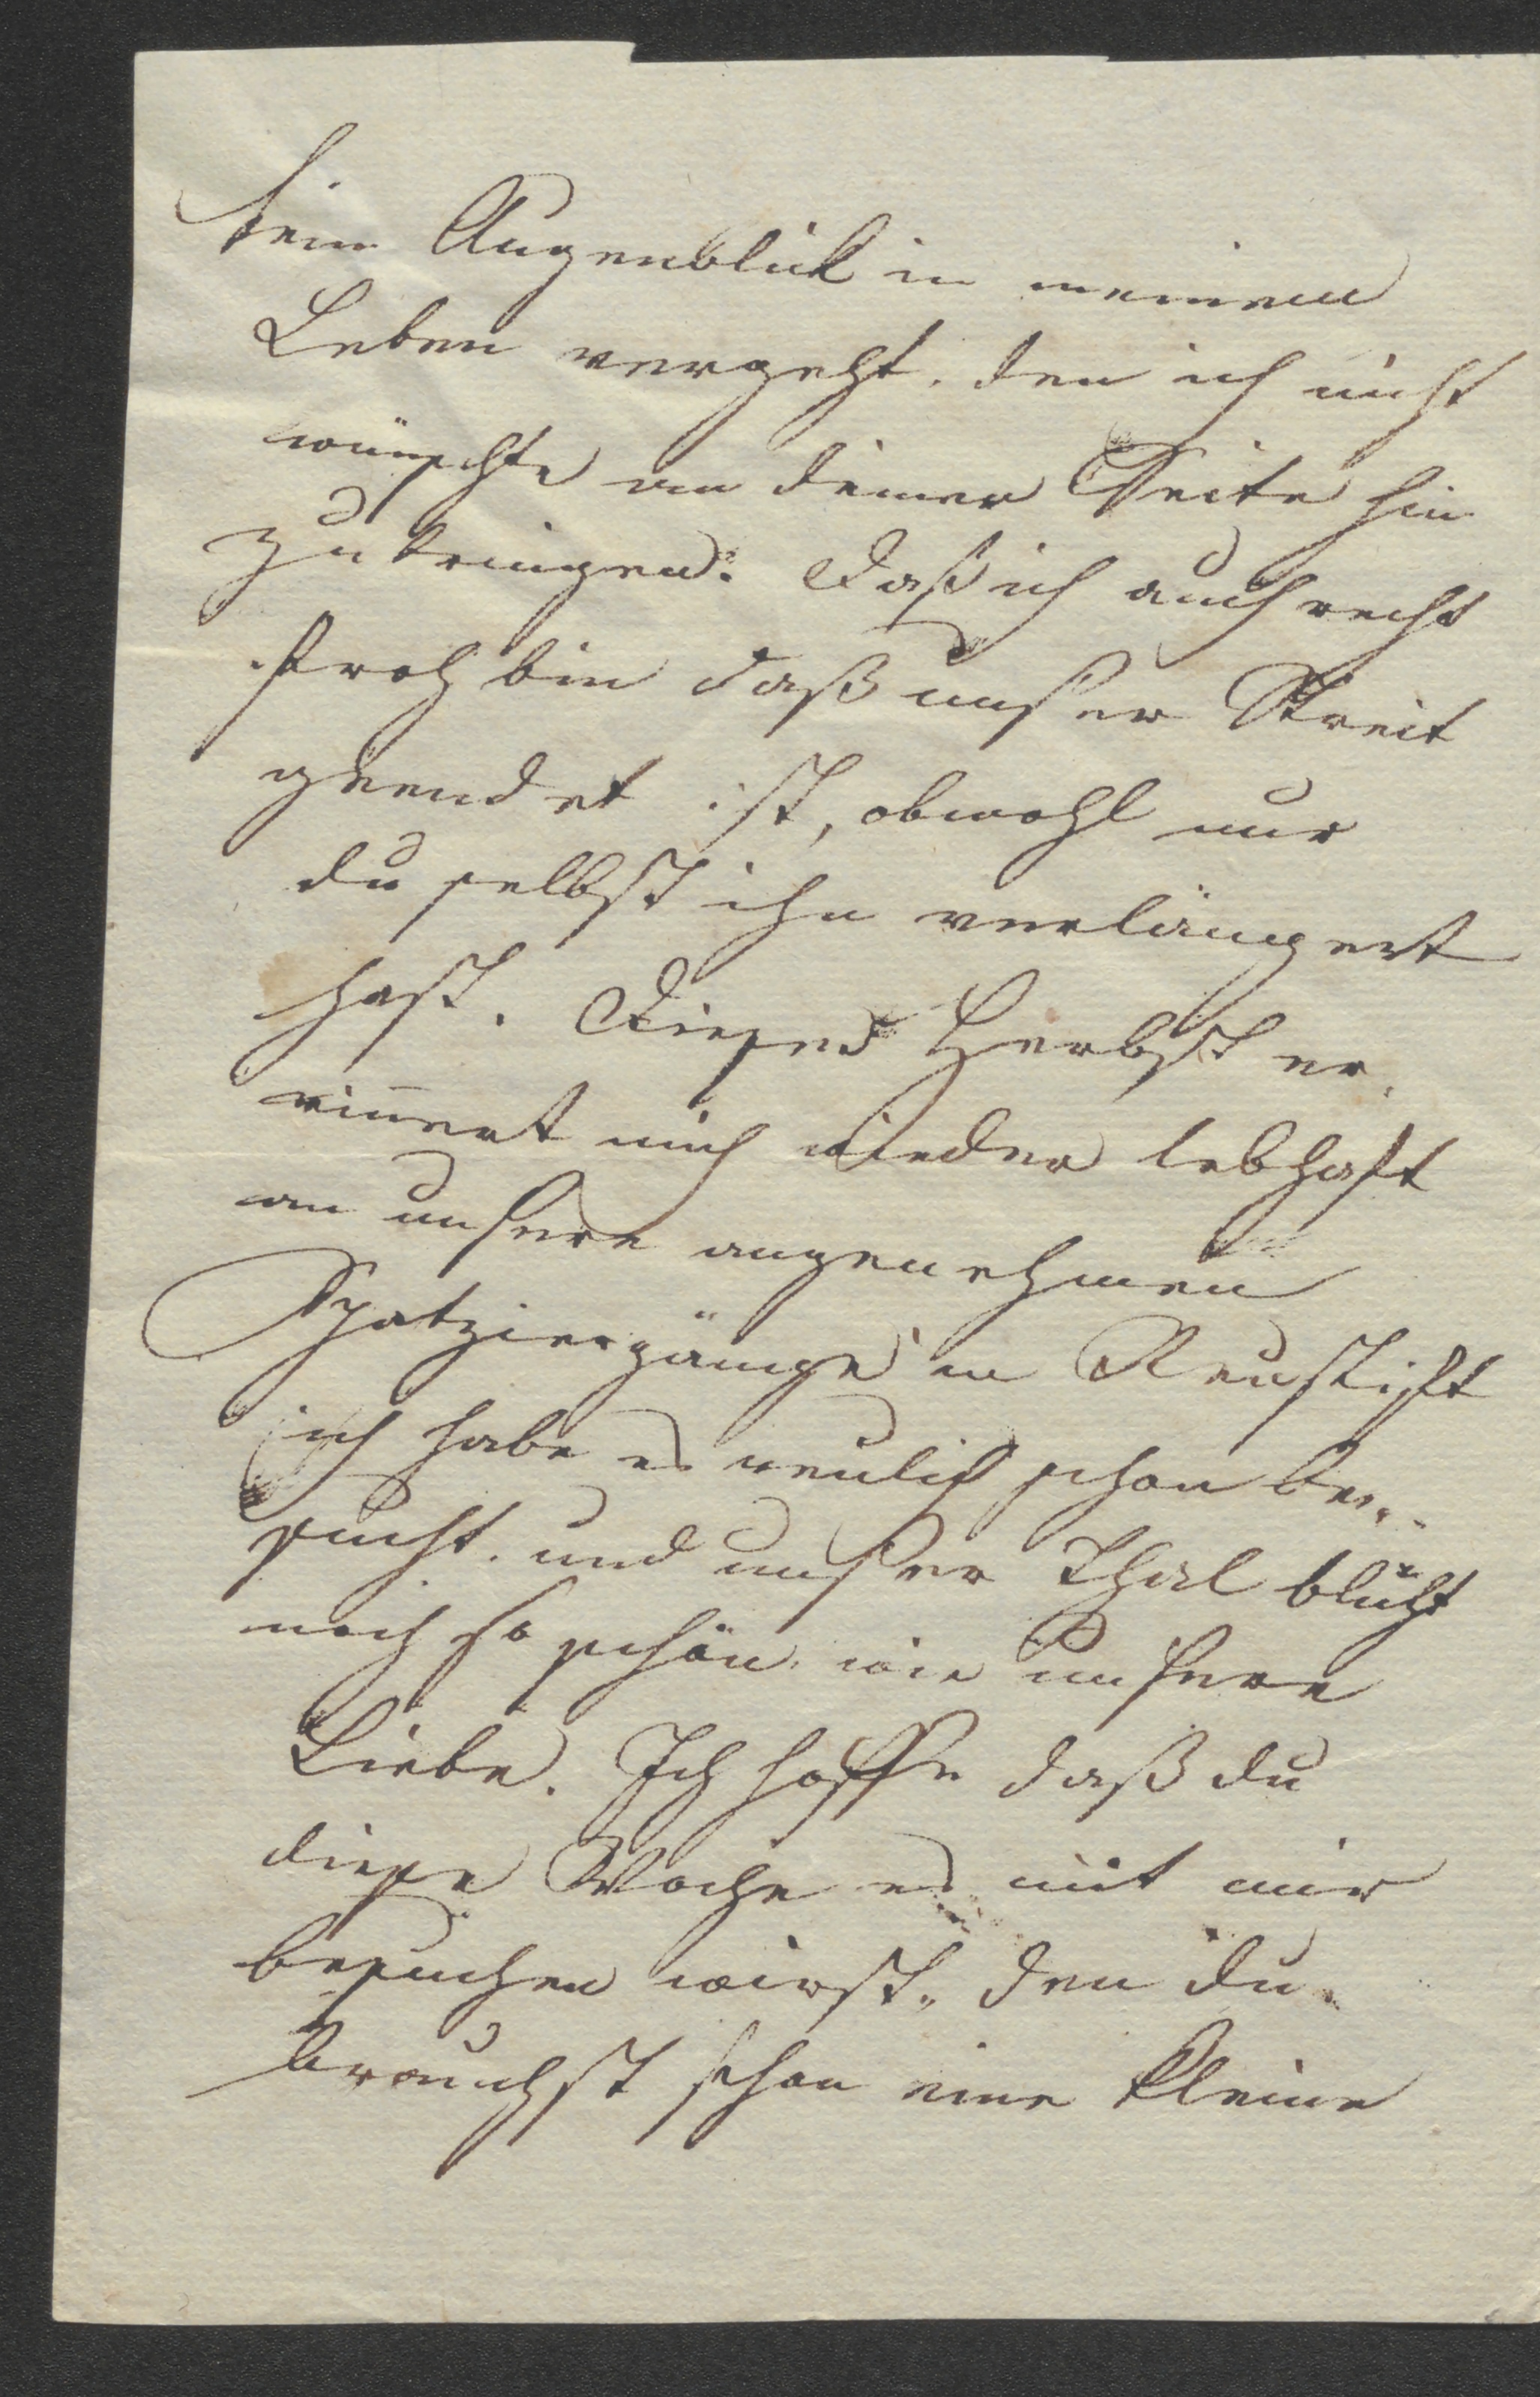 kein Augenblick in meinem
Leben vergeht, den ich nicht
wünschte an deiner Seite hin
zu bringen. Daß ich auch recht
froh bin daß unser Streit
geendet ist, obwohl nur
du selbst ihn verlängert
hast. Dieser Herbst er-
rinnert mich wieder lebhaft
an unsere angenehmen
Spatziergänge in Neustift
ich habe es neulich schon be-
sucht. und unser Thal blüht
noch so schön, wie unsere
Liebe. Ich hoffe daß du
diese Woche es mit mir
besuchen wirst, den du
brauchst schon eine kleine